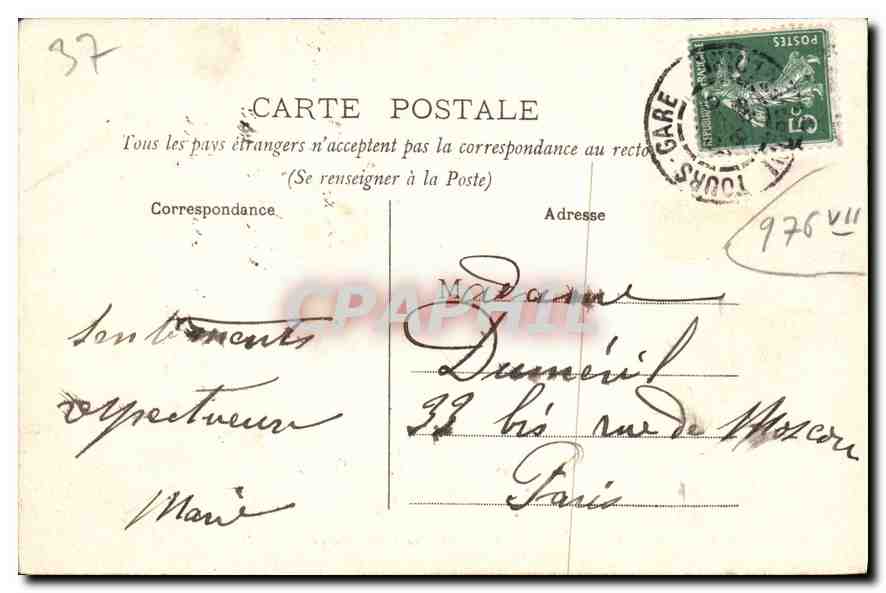 37
REPUBLIQUE FRANCAISE
POSTES
5c
TOURS-GARE
CARTE POSTALE
Tous les pays étrangers n'acceptent pas la correspondance au recto
(Se renseigner à la Poste)
Correspondance
Adresse
976 VII
CPAPHIL
sentiments
respectueux
Marie
Madame
Duménil
33 bis rue de Moscou
Paris